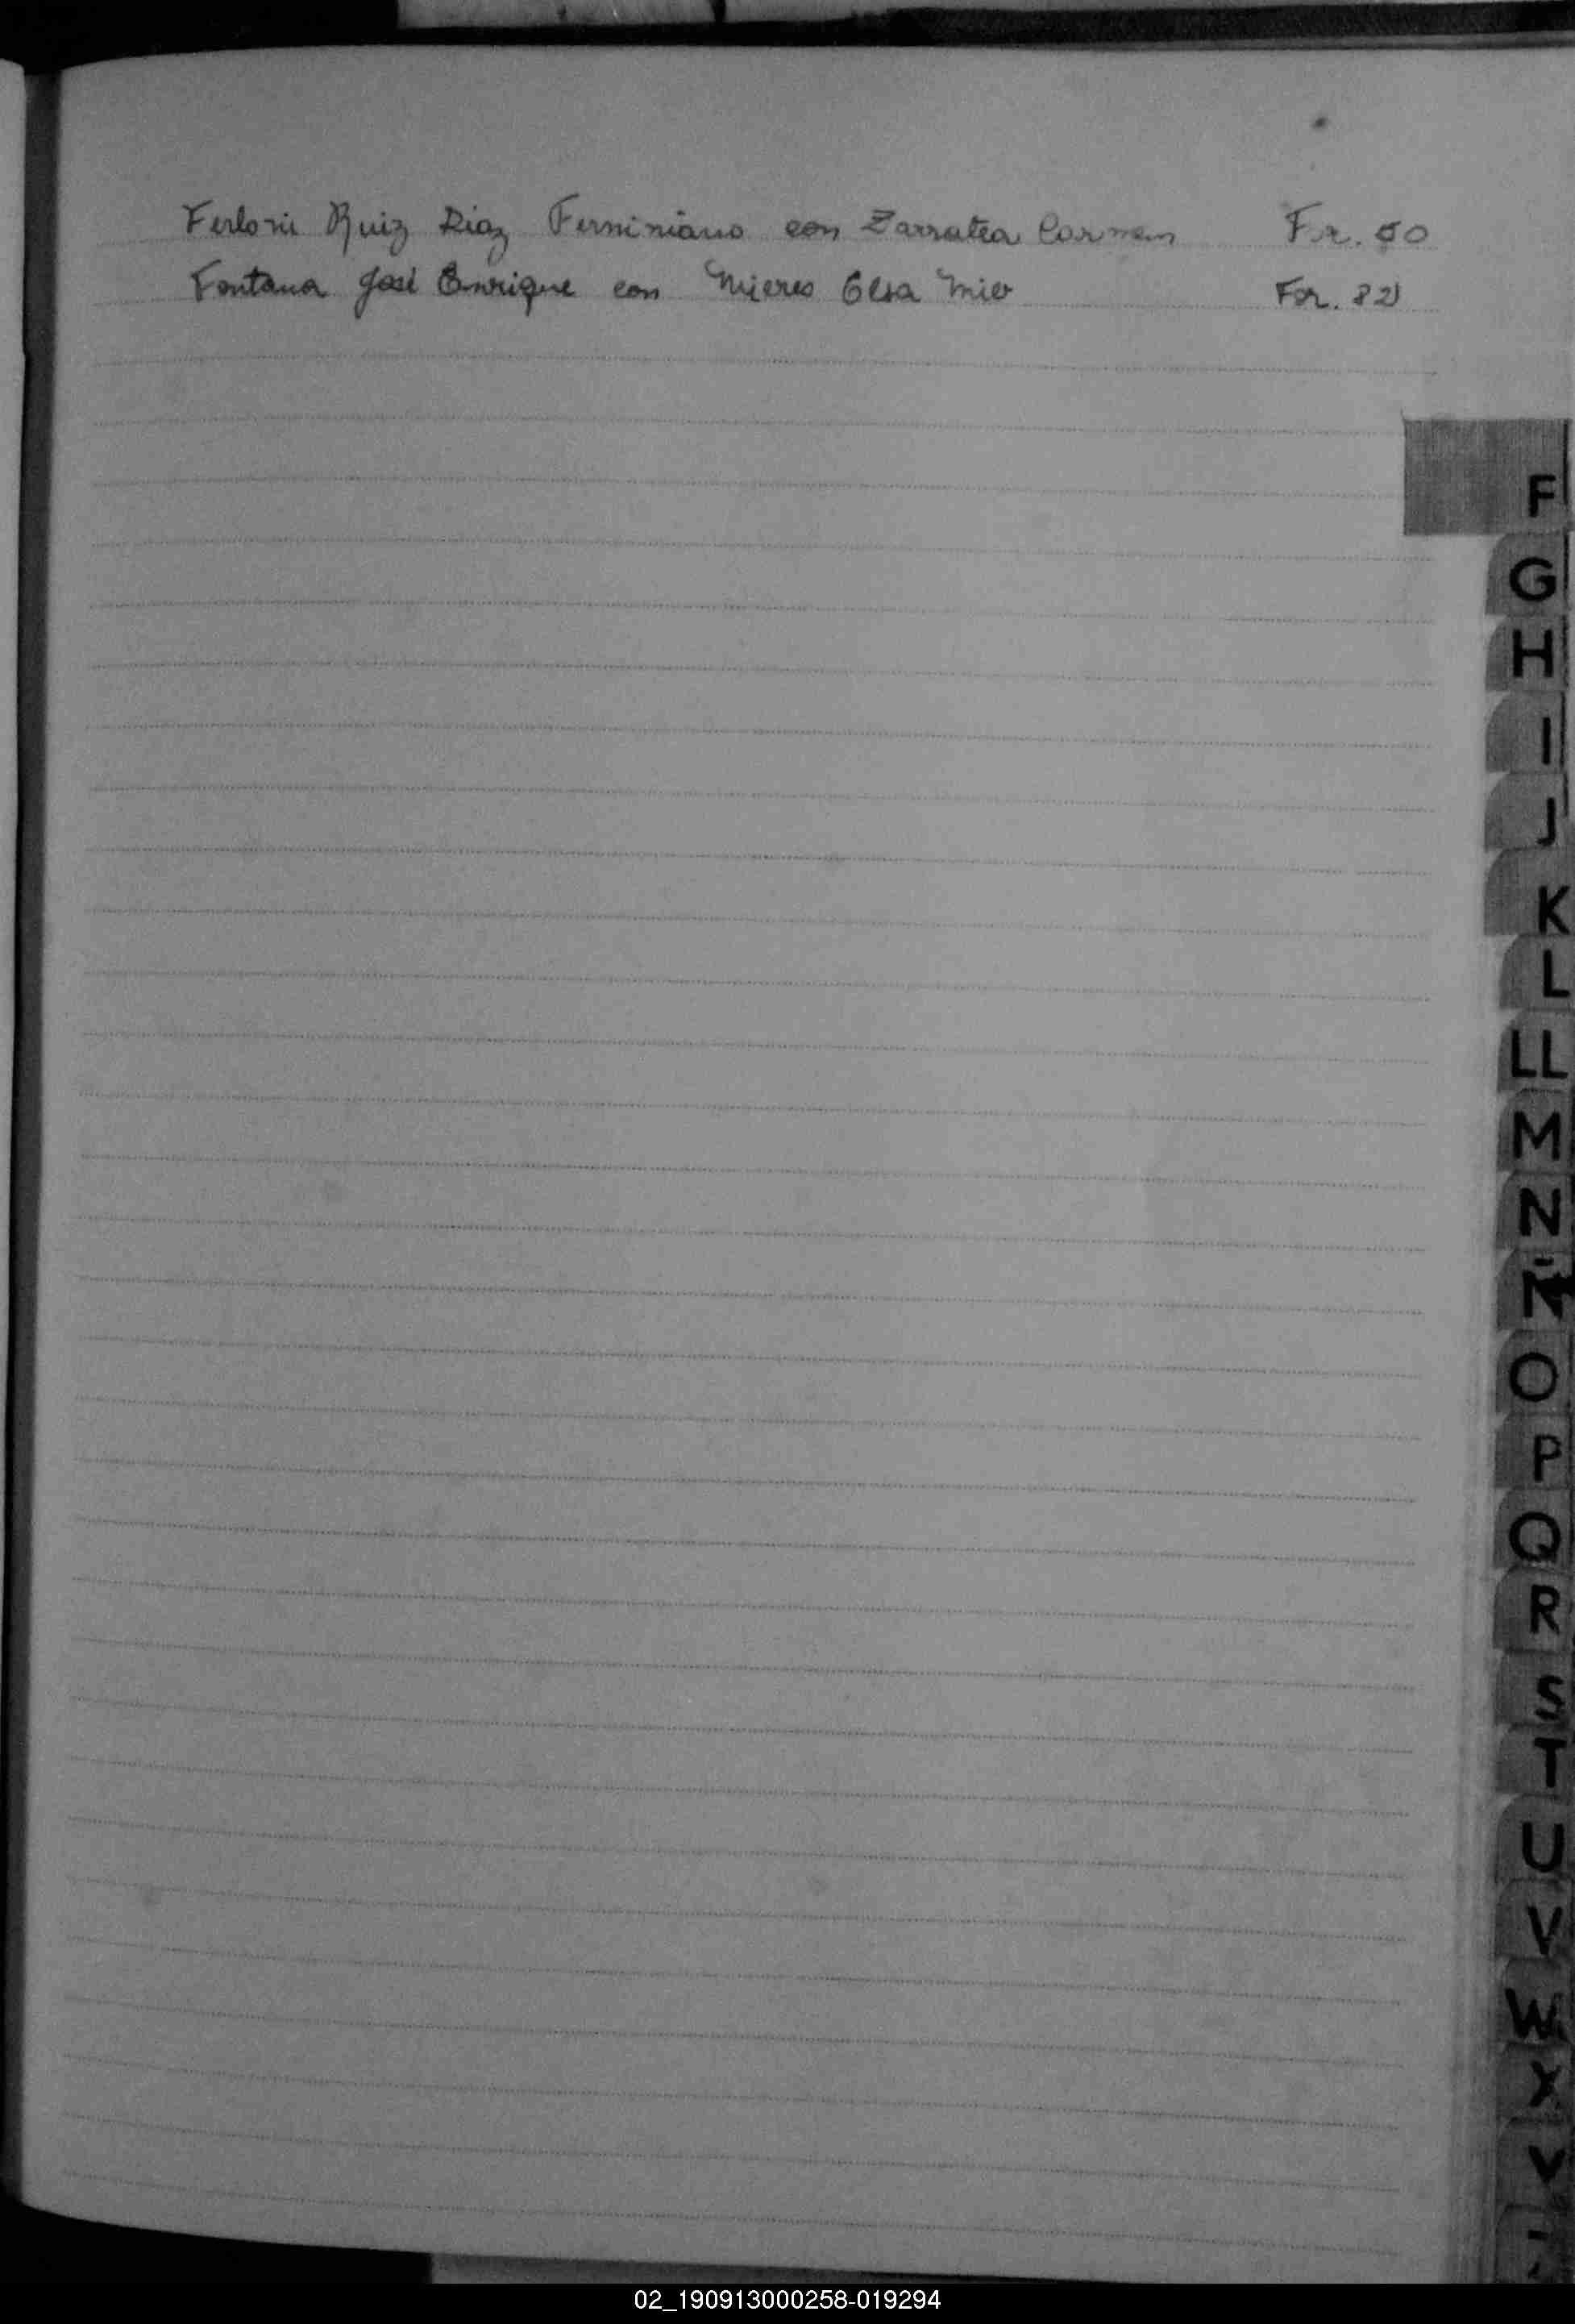 Ferloni Ruiz Diaz Ferminiano con Zarratea Carmen Fr. 50
Fontana José Enrique con Mieres Elsa For. 82
F
G
H
I
J
K
L
LL
M
N
Ñ
O
P
Q
R
S
T
U
V
W
X
Y
02_190913000258-019294